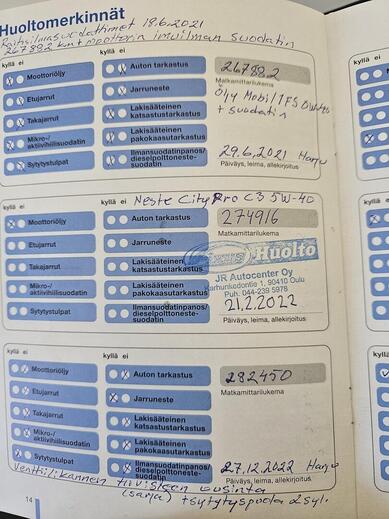 Huoltomerkinnät
Raitisilmasuodattimet 18.6.2021
267882 km + moottorin imuilman suodatin
kyllä ei
kyllä ei
Moottoriöljy
Auton tarkastus
267882
Matkamittarilukema
Etujarrut
Jarruneste
Öljy Mobil 1 FS 0W40
Takajarrut
Lakisääteinen katsastustarkastus
+ suodatin
Mikro-/aktiivihiilisuodatin
Lakisääteinen pakokaasutarkastus
Sytytystulpat
Ilmansuodatinpanos/dieselpolttoneste-suodatin
29.6.2021
Päiväys, leima, allekirjoitus
kyllä ei
kyllä ei
Neste City Pro C3 5W-40
Moottoriöljy
Auton tarkastus
274916
Matkamittarilukema
Etujarrut
Jarruneste
Huolto
Takajarrut
Lakisääteinen katsastustarkastus
JR Autocenter Oy
Karhunkodontie 1, 90410 Oulu
Puh. 044-239 5978
Mikro-/aktiivihiilisuodatin
Lakisääteinen pakokaasutarkastus
21.2.2022
Sytytystulpat
Ilmansuodatinpanos/dieselpolttoneste-suodatin
Päiväys, leima, allekirjoitus
kyllä ei
kyllä ei
Moottoriöljy
Auton tarkastus
282450
Matkamittarilukema
Etujarrut
Jarruneste
Takajarrut
Lakisääteinen katsastustarkastus
Mikro-/aktiivihiilisuodatin
Lakisääteinen pakokaasutarkastus
Sytytystulpat
Ilmansuodatinpanos/dieselpolttoneste-suodatin
27.12.2022
Päiväys, leima, allekirjoitus
Venttiilikannen tiivisteen uusinta
(sarja) + sytytyspuola 2 syl.
14